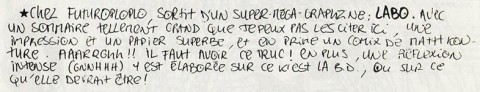 ★ CHEZ FUTUROPOLOPLO, SORTIT D'UN SUPER-MEGA-GRAPHZINE; LABO. AVEC
UN SOMMAIRE TELLEMENT GRAND QUE JE PEUX PAS LES CITER ICI, UNE
IMPRESSION ET UN PAPIER SUPERBE, ET EN PRIME UN COMIX DE MATT KON-
TURE. AAARRGHH!! IL FAUT AVOIR CE TRUC! EN PLUS, UNE RÉFLEXION
INTENSE (GNNHHH) Y EST ÉLABORÉE SUR CE QU'EST LA B.D., OU SUR CE
QU'ELLE DEVRAIT ÊTRE!